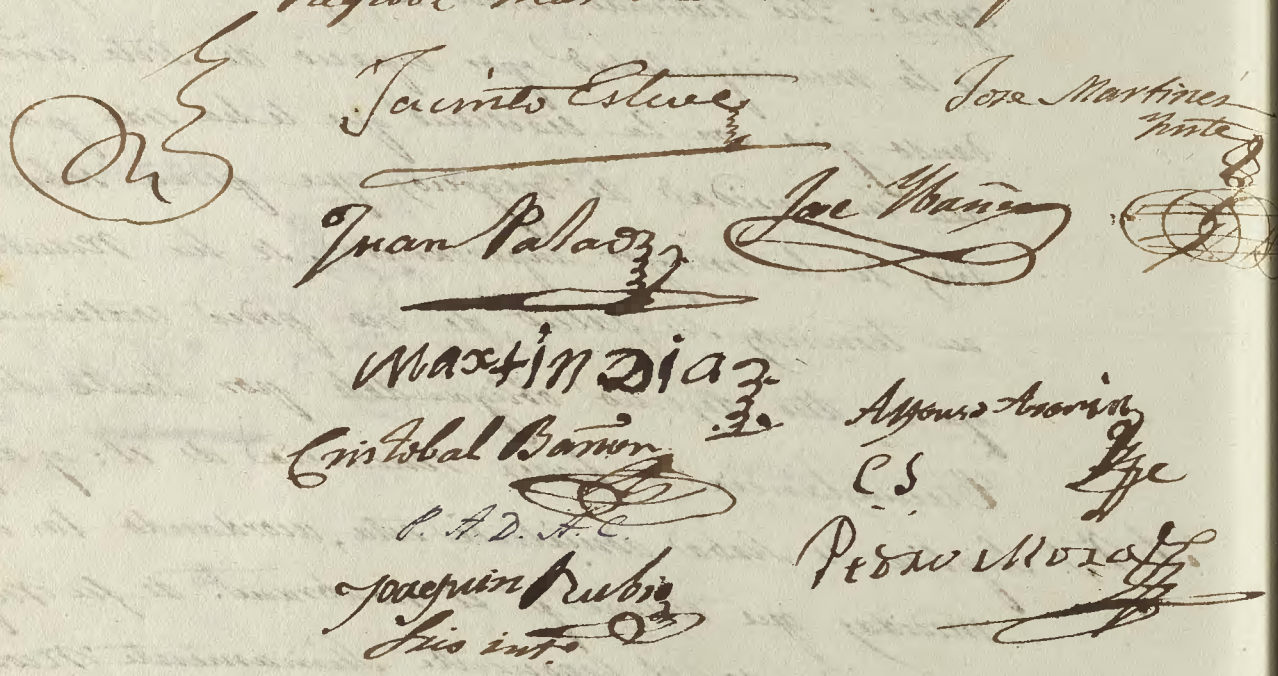 Jacinto Esteve
Jose Martines
Jose Ybañes
Juan Palao
Martin Diaz
Alfonso Azorin
Cristobal Bañon
C S
P. A. D. A. C.
Pedro Mora
Joaquin Rubio
Srio into